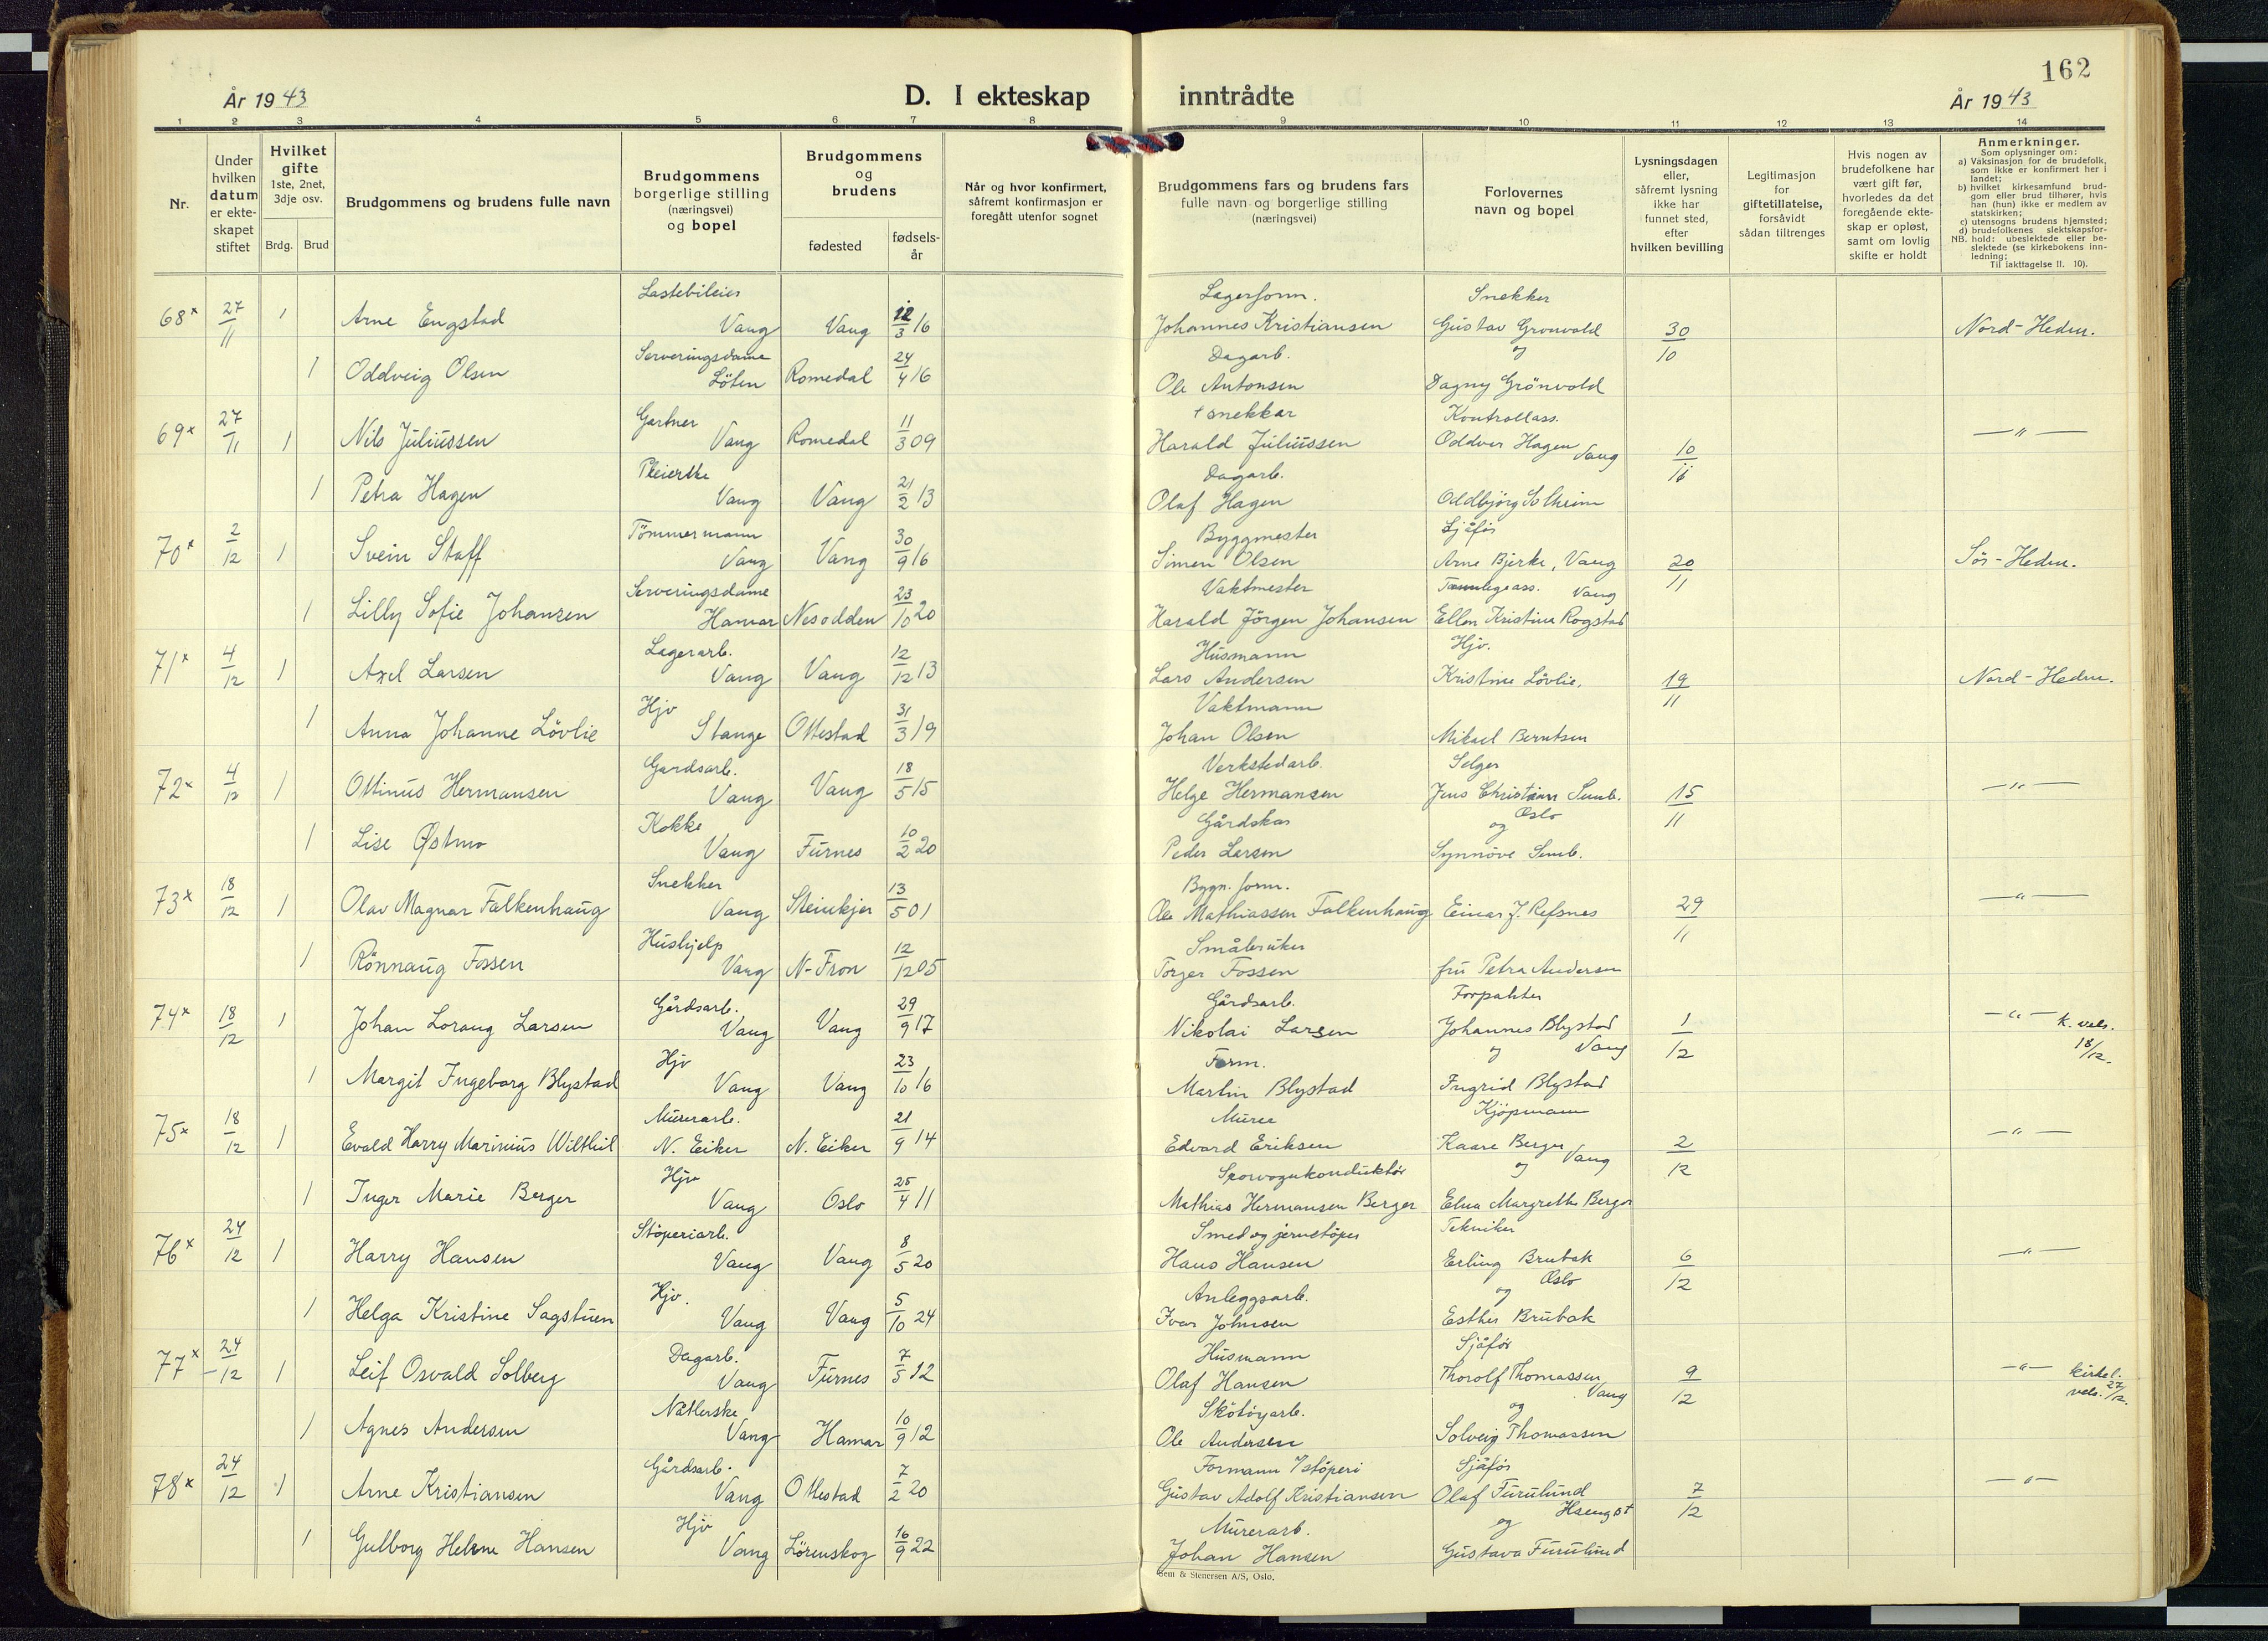 162
År 1943 D. I ekteskap inntrådte År 1943
1 2 3 4 5 6 7 8 9 10 11 12 13 14
Nr.
Under hvilken datum er ekte-skapet stiftet
Hvilket gifte 1ste, 2net, 3dje osv.
Brdg. Brud
Brudgommens og brudens fulle navn
Brudgommens borgerlige stilling (næringsvei) og bopel
Brudgommens og brudens
fødested
fødsels-år
Når og hvor konfirmert, såfremt konfirmasjon er foregått utenfor sognet
Brudgommens fars og brudens fars fulle navn og borgerlige stilling (næringsvei)
Forlovernes navn og bopel
Lysningsdagen eller, såfremt lysning ikke har funnet sted, efter hvilken bevilling
Legitimasjon for giftetillatelse, forsåvidt sådan tiltrenges
Hvis nogen av brudefolkene har vært gift før, hvorledes da det foregående ekte-skap er opløst, samt om lovlig skifte er holdt
Anmerkninger.
Som oplysninger om:
a) Vaksinasjon for de brudefolk, som ikke er konfirmert her i landet;
b) hvilket kirkesamfund brud-gom eller brud tilhører, hvis han (hun) ikke er medlem av statskirken;
c) utensogns brudens hjemsted;
d) brudefolkenes slektskapsfor-
NB. hold: ubeslektede eller be-slektede (se kirkebokens inn-ledning;
Til iakttagelse II. 10).
Lastebileier Lagerform. Snekker
68x 27/11 1 Arne Engstad Vang Vang 12/3 16 Johannes Kristiansen Gustav Gronvold 30/10 Nord-Hedm.
Serveringsdame Dagarb. og
1 Oddveig Olsen Löten Romedal 24/4 16 Ole Antonsen Dagny Grönvold
Gartner + snekkar Kontrollass.
69x 27/11 1 Nils Juliussen Vang Romedal 11/3 09 Harald Juliussen Oddvar Hagen Vang 10/11 —"—
Pleierske Dagarb.
1 Petra Hagen Vang Vang 21/2 13 Olaf Hagen Oddbjörg Solheim
Tömmermann Byggmester Sjåför
70x 2/12 1 Svein Staff Vang Vang 30/9 16 Simen Olsen Arne Bjerke, Vang 20/11 Sör-Hedm.
Serveringsdame Vaktmester Tannlegeass. Vang
1 Lilly Sofie Johansen Hamar Nesodden 23/10 20 Harald Jörgen Johansen Ellen Kristina Rogstad
Lagerarb. Husmann Hjv.
71x 4/12 1 Axel Larsen Vang Vang 12/12 13 Lars Andersen Kristine Lövlie, 19/11 Nord-Hedm.
Hjv Vaktmann
1 Anna Johanne Lövlie Stange Ottestad 31/3 19 Johan Olsen Mikael Berntsen
Gardsarb. Verkstedarb. Selger
72x 4/12 1 Ottinus Hermansen Vang Vang 18/5 15 Helge Hermansen Jens Christian Semb. 15/11 —"—
Kokke Gårdskar og Oslo
1 Lise Østmo Vang Furnes 10/2 20 Peder Larsen Synnöve Semb.
Snekker Bygn. form.
73x 18/12 1 Olav Magnar Falkenhaug Vang Steinkjer 13/5 01 Ole Mathiassen Falkenhaug Einar J. Refsnes 29/11 —"—
Hushjelp Småbruker
1 Rönnaug Fossen Vang N-Fron 12/12 05 Torger Fossen fru Petra Andersen
Gårdsarb. Gårdsarb. Forpakter
74x 18/12 1 Johan Lorang Larsen Vang Vang 29/9 17 Nikolai Larsen Johannes Blystad 1/12 —"— k. vels. 18/12.
Hjv Form. og Vang
1 Margit Ingeborg Blystad Vang Vang 23/10 16 Martin Blystad Ingrid Blystad
Murerarb. Murer Kjöpmann
75x 18/12 1 Evald Harry Marinius Wilthil N. Eiker N. Eiker 21/9 14 Edvard Eriksen Kaare Berger 2/12 —"—
Hjv Sporvognkonduktör og Vang
1 Inger Marie Berger Vang Oslo 25/4 11 Mathias Hermansen Berger Elna Margrethe Berger
Stöperiarb. Smed og jernstöper Tekniker
76x 24/12 1 Harry Hansen Vang Vang 8/5 20 Hans Hansen Erling Brubak 6/12 —"—
Hjv. Anleggsarb. og Oslo
1 Helga Kristine Sagstuen Vang Vang 5/10 24 Ivar Johnsen Esther Brubak
Dagarb. Husmann Sjåför
77x 24/12 1 Leif Osvald Solberg Vang Furnes 7/5 12 Olaf Hansen Thorolf Thomassen 9/12 —"— kirkel. vels. 27/12.
Nåtlerske Skötöyarb. og Vang
1 Agnes Andersen Vang Hamar 10/9 12 Ole Andersen Solveig Thomassen
Gårdsarb. Formann i/stöperi Sjåför
78x 24/12 1 Arne Kristiansen Vang Ottestad 7/2 20 Gustav Adolf Kristiansen Olaf Furulund 7/12 —"—
Hjv Murerarb. og
1 Gulborg Helene Hansen Vang Lörenskog 16/9 22 Johan Hansen Gustava Furulund
Sem & Stenersen A/S, Oslo.